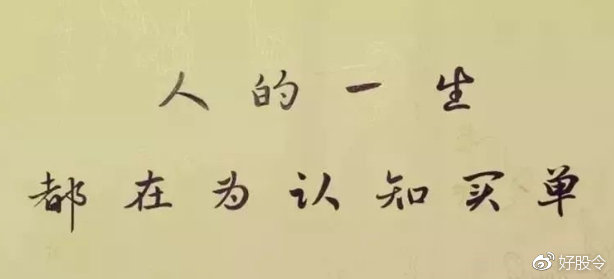 人的一生
都在为认知买单
好股令